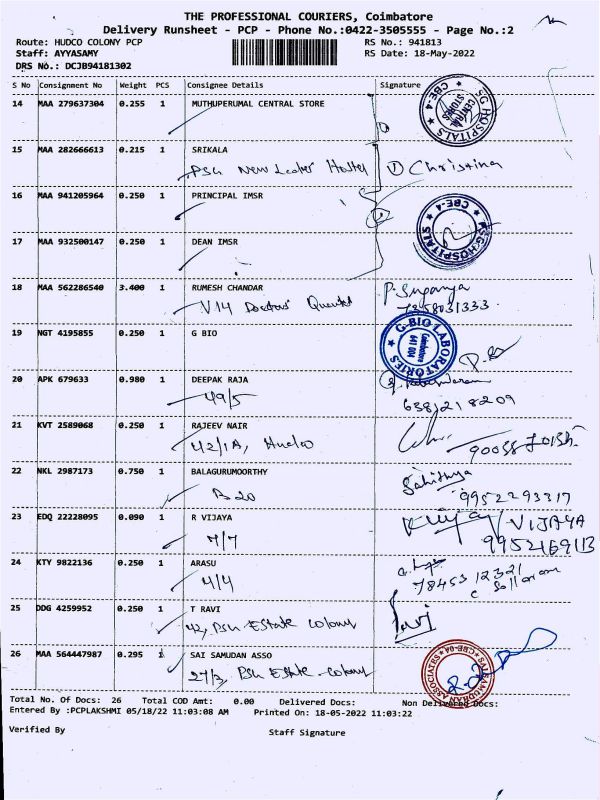 THE PROFESSIONAL COURIERS, Coimbatore
Delivery Runsheet - PCP - Phone No.:0422-3505555 - Page No.:2
Route: HUDCO COLONY PCP RS No.: 941813
Staff: AYYASAMY RS Date: 18-May-2022
DRS No.: DCJB94181302
S No Consignment No Weight PCS Consignee Details Signature
14 MAA 279637304 0.255 1 MUTHUPERUMAL CENTRAL STORE
SG HOSPITALS CENTRAL STORES CBE-4
15 MAA 282666613 0.215 1 SRIKALA
PSG New Hostel ① Christina
16 MAA 941205964 0.250 1 PRINCIPAL IMSR
17 MAA 932500147 0.250 1 DEAN IMSR
SG HOSPITALS CBE-4
18 MAA 562286540 3.400 1 RUMESH CHANDAR
V14 Doctors' P. Supanya
7858031333
19 NGT 4195855 0.250 1 G BIO
G-BIO LABORATORIES Coimbatore 641 004
20 APK 679633 0.980 1 DEEPAK RAJA
49/5 6381218209
21 KVT 2589068 0.250 1 RAJEEV NAIR
42/1A, Hudco
22 NKL 2987173 0.750 1 BALAGURUMOORTHY
B 20 9952293317
23 EDQ 22228095 0.090 1 R VIJAYA
7/7 VIJAYA
9952169113
24 KTY 9822136 0.250 1 ARASU
4/4 7845312321
25 DDG 4259952 0.250 1 T RAVI
42, PSG Estate colony Ravi
26 MAA 564447987 0.295 1 SAI SAMUDAN ASSO
27/3, PSG Estate - colony
Total No. Of Docs: 26 Total COD Amt: 0.00 Delivered Docs: Non Delivered Docs:
Entered By :PCPLAKSHMI 05/18/22 11:03:08 AM Printed On: 18-05-2022 11:03:22
Verified By Staff Signature